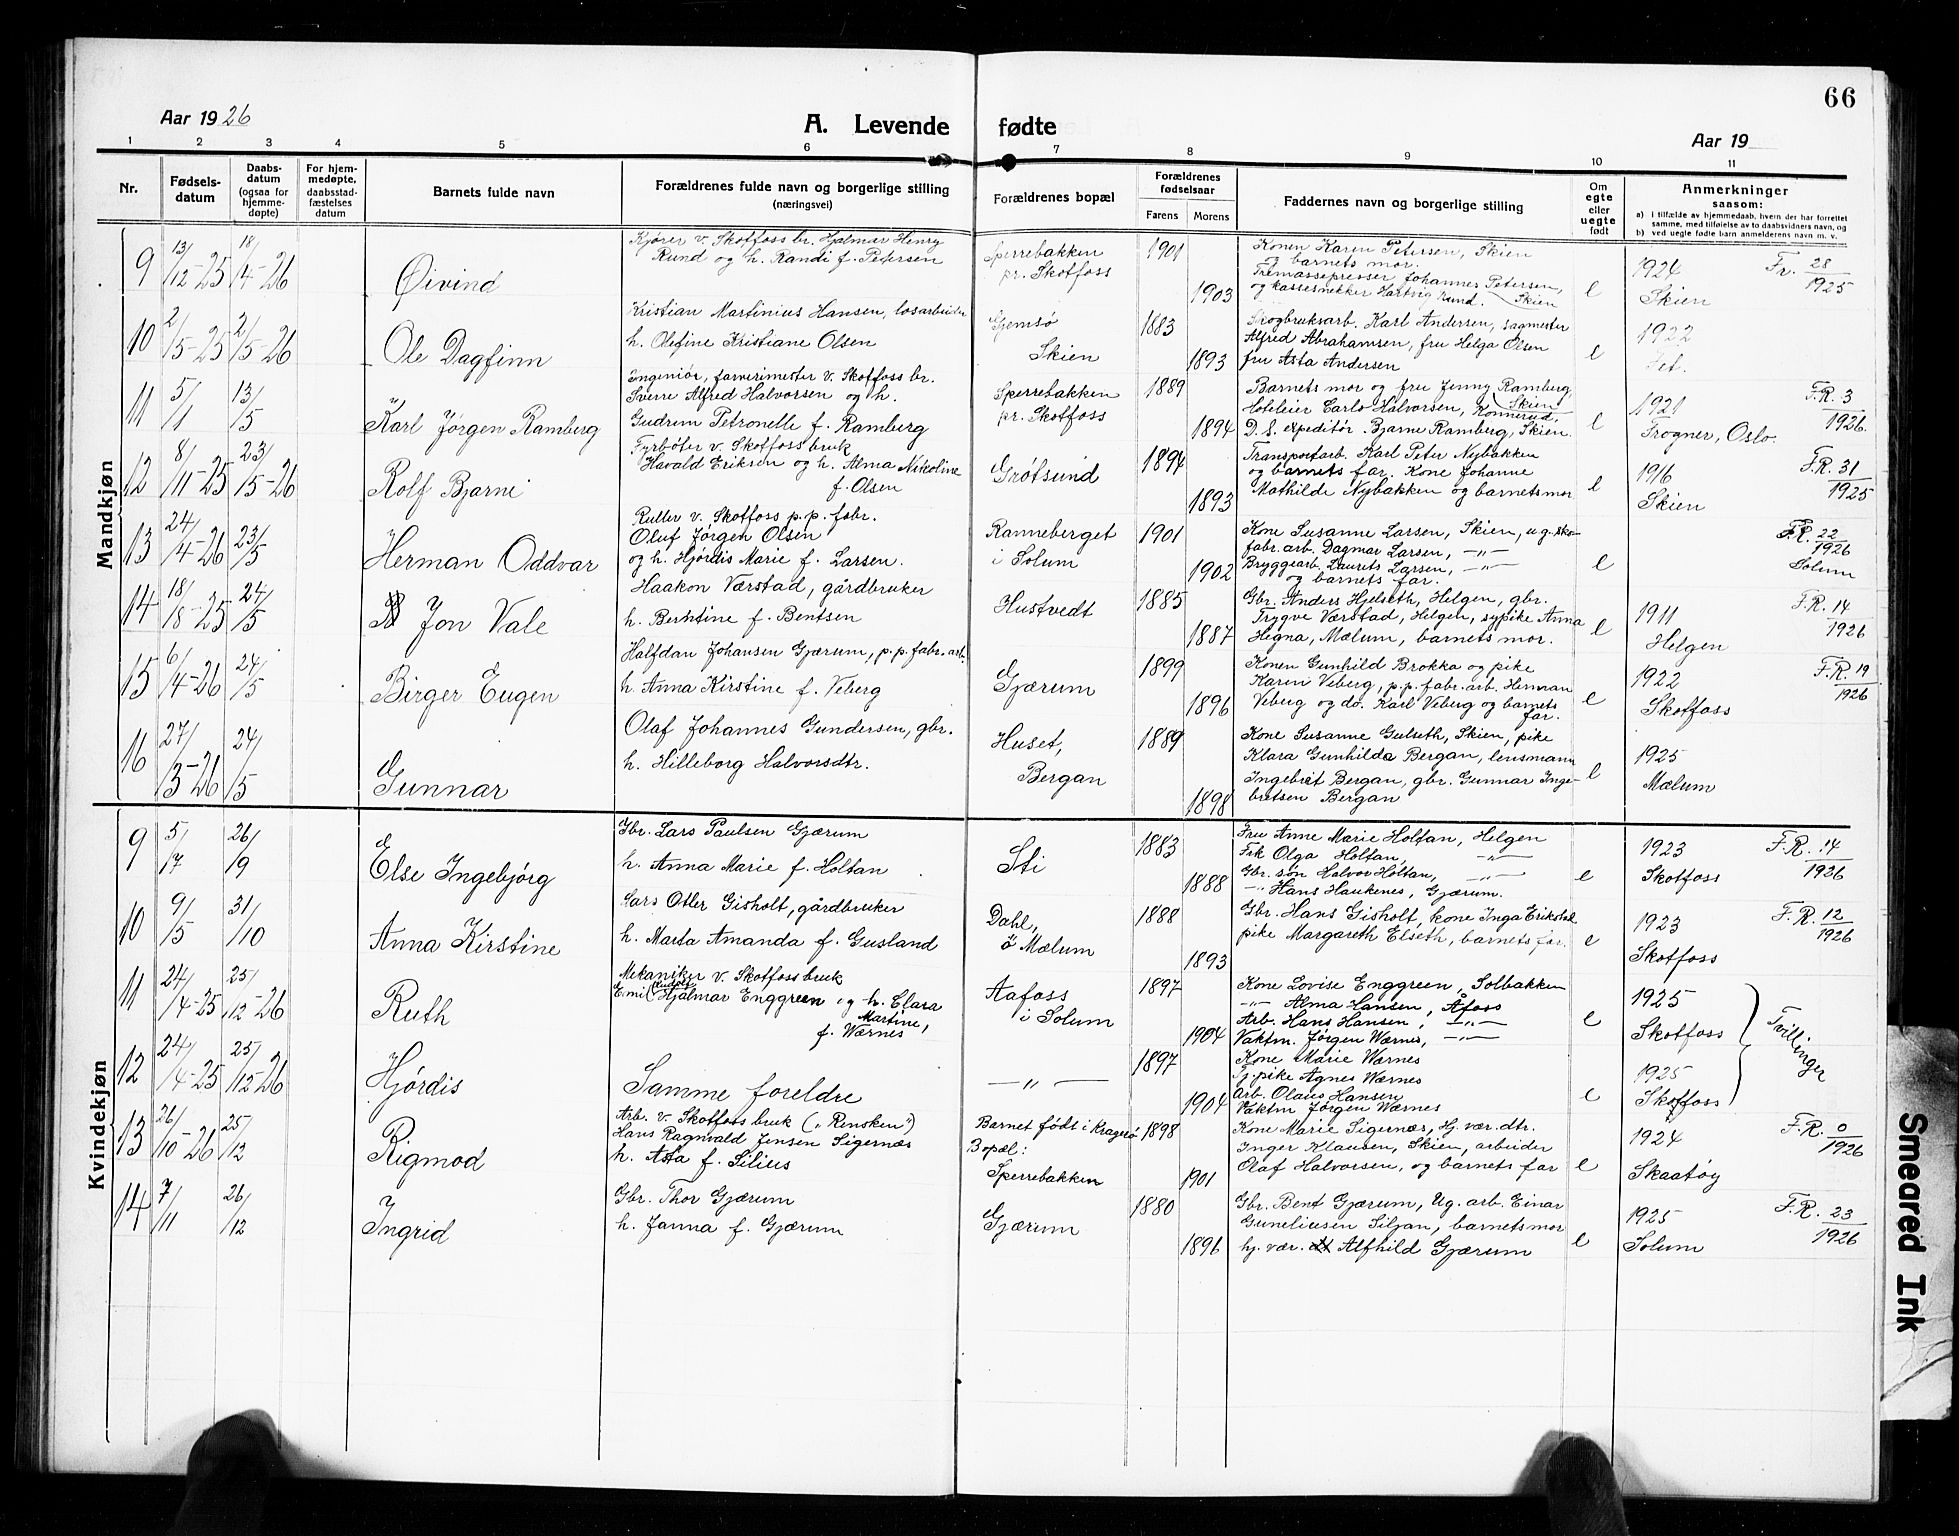 66
Aar 1926
A. Levende fødte
Aar 19
1 2 3 4 5 6 7 8 9 10 11
Nr.
Fødsels-
datum
Daabs-
datum
(ogsaa for
hjemme-
døpte)
For hjem-
medøpte,
daabsstad-
fæstelses
datum
Barnets fulde navn
Forældrenes fulde navn og borgerlige stilling
(næringsvei)
Forældrenes bopæl
Forældrenes
fødselsaar
Farens Morens
Faddernes navn og borgerlige stilling
Om
egte
eller
uegte
født
Anmerkninger
saasom:
a) i tilfælde av hjemmedaab, hvem der har forrettet
samme, med tilføielse av to daabsvidners navn, og
b) ved uegte fødte barn anmelderens navn m. v.
Mandkjøn
9 13/12-25 18/4-26 Øivind
Kjører v. Skotfoss br. Hjalmar Henry
Rund og h. Randi f. Petersen
Sperrebakken
pr. Skotfoss
1901
1903
Konen Karen Petersen, Skien
og barnets mor.
Tremassepresser Johannes Petersen,
og kassesnekker Hartvig Rund. Skien
e
1924
Skien
Fr. 28/1925
10 2/5-25 2/5-26 Ole Dagfinn
Kristian Martinius Hansen, losarbeider
h. Olefine Kristiane Olsen
Gjemsø
Skien
1883
1893
Skogbruksarb. Karl Andersen, sagmester
Alfred Abrahamsen, fru Helga Olsen
fru Asta Andersen
e
1922
11 5/1 13/5 Karl Jørgen Ramberg
Ingeniør, farverimester v. Skotfoss br.
Sverre Alfred Halvorsen og h.
Gudrun Petronelle f. Ramberg
Sperrebakken
pr. Skotfoss
1889
1894
Barnets mor og fru Jenny Ramberg,
Skien
Hoteleier Carlo Halvorsen, Konnerud,
D. S. expeditør Bjarne Ramberg, Skien.
e
1921
Frogner, Oslo.
F.R. 3/1926
12 8/11-25 23/5-26 Rolf Bjarne
Fyrbøter v. Skotfoss bruk
Havald Eriksen og h. Alma Nikoline
f. Olsen
Grøtsund
1894
1893
Transportarb. Karl Peter Nybakken
og barnets far. Kone Johanne
Mathilde Nybakken og barnets mor
e
1916
Skien
F.R. 31/1925
13 24/4-26 23/5 Herman Oddvar
Ruller v. Skotfoss p.p. fabr.
Oluf Jørgen Olsen
og h. Hjørdis Marie f. Larsen.
Ranneberget
i Solum
1901
1902
Kone Susanne Larsen, Skien, ug. sko-
fabr. arb. Dagmar Larsen, —"—
Bryggearb. Laurits Larsen, —"—
og barnets far.
e
F.R. 22/1926
Solum
14 18/8-25 24/5 Jon Vale
Haakon Værstad, gårdbruker
h. Berntine f. Bentsen
Hustvedt
1885
1887
Gbr. Anders Hjelseth, Helgen, gbr.
Trygve Værstad, Helgen, sypike Anna
Hegna, Mælum, barnets mor.
e
1911
Helgen
F.R. 14/1926
15 6/4-26 24/5 Birger Eugen
Halfdan Johansen Gjærum, p.p. fabr. arb.
h. Anna Kirstine f. Veberg
Gjærum
1899
1896
Konen Gunhild Brokka og pike
Karen Veberg, p.p. fabr. arb. Herman
Veberg og do. Karl Veberg og barnets
far.
e
1922
Skotfoss
F.R. 19/1926
16 27/3-26 24/5 Gunnar
Olaf Johannes Gundersen, gbr.
h. Hilleborg Halvorsdtr.
Huset,
Bergan
1889
1898
Kone Susanne Gulseth, Skien, pike
Klara Gunhilda Bergan, lensmann
Ingebret Bergan, gbr. Gunnar Inge-
bretsen Bergan
e
1925
Mælum
Kvindekjøn
9 5/17 26/19 Else Ingebjørg
Gbr. Lars Paulsen Gjærum
h. Anna Marie f. Holtan
Sti
1883
1888
Fru Anne Marie Holtan, Helgen
Frk Olga Holtan, —"—
Gbr. søn Halvor Holtan, —"—
—"— Hans Haukenes, Gjærum.
e
1923
Skotfoss
F.R. 14/1926
10 9/5 31/10 Anna Kirstine
Lars Otler Gisholt, gårdbruker
h. Marta Amanda f. Gusland
Dahl,
ö Mælum
1888
1893
Gbr. Hans Gisholt, kone Inga Erikstad
pike Margareth Elseth, barnets far.
e
1923
Skotfoss
F.R. 12/1926
11 24/4-25 25/12-26 Ruth
Mekaniker v. Skotfoss bruk
Emil Rudolf Hjalmar Enggreen og h. Clara
Martine,
f. Wærnes
Aafoss
i Solum
1897
1904
Kone Lovise Enggreen, Solbakken
—"— Alma Hansen, Åfoss
Arb. Hans Hansen, —"—
Vaktm. Jørgen Wærnes, —"—
e
1925
Skotfoss
Tvillinger
12 24/4-25 25/12-26 Hjørdis
Samme foreldre
—"—
1897
1904
Kone Marie Wærnes
Tj. pike Agnes Wærnes
Arb. Olaus Hansen
Vaktm Jørgen Wærnes
e
1925
Skotfoss
13 26/10-26 25/12 Rigmod
Arb. v. Skotfoss bruk („Rensken")
Hans Ragnvald Jensen Sigernæs
h. Asta f. Silius
Barnet født i Kragerø
Bopæl:
Sperrebakken
1898
1901
Kone Marie Sigernæs, hj. vær. dtr.
Inger Klausen, Skien, arbeider
Olaf Halvorsen, og barnets far
e
1924
Skaatøy
F.R. 0/1926
14 7/11 26/12 Ingrid
Gbr. Thor Gjærum
h. Janna f. Gjærum
Gjærum
1880
1896
Gbr. Bent Gjærum, Ug. arb. Einar
Guneliusen Siljan, barnets mor
hj. vær. Alfhild Gjærum
e
1925
Solum
F.R. 23/1926
Smeared Ink